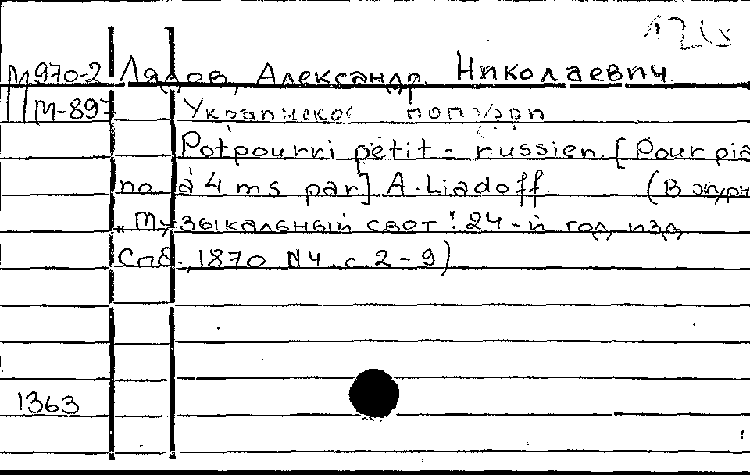 М970-2 Лядов, Александр Николаевич
М-897 Украинское попурри
Potpourri petit-russien. [Pour pia
no à 4 ms par] A. Liadoff (В журн
"Музыкальный свет". 24-й год изд.
Спб. 1870 N4 с 2-9)
1363